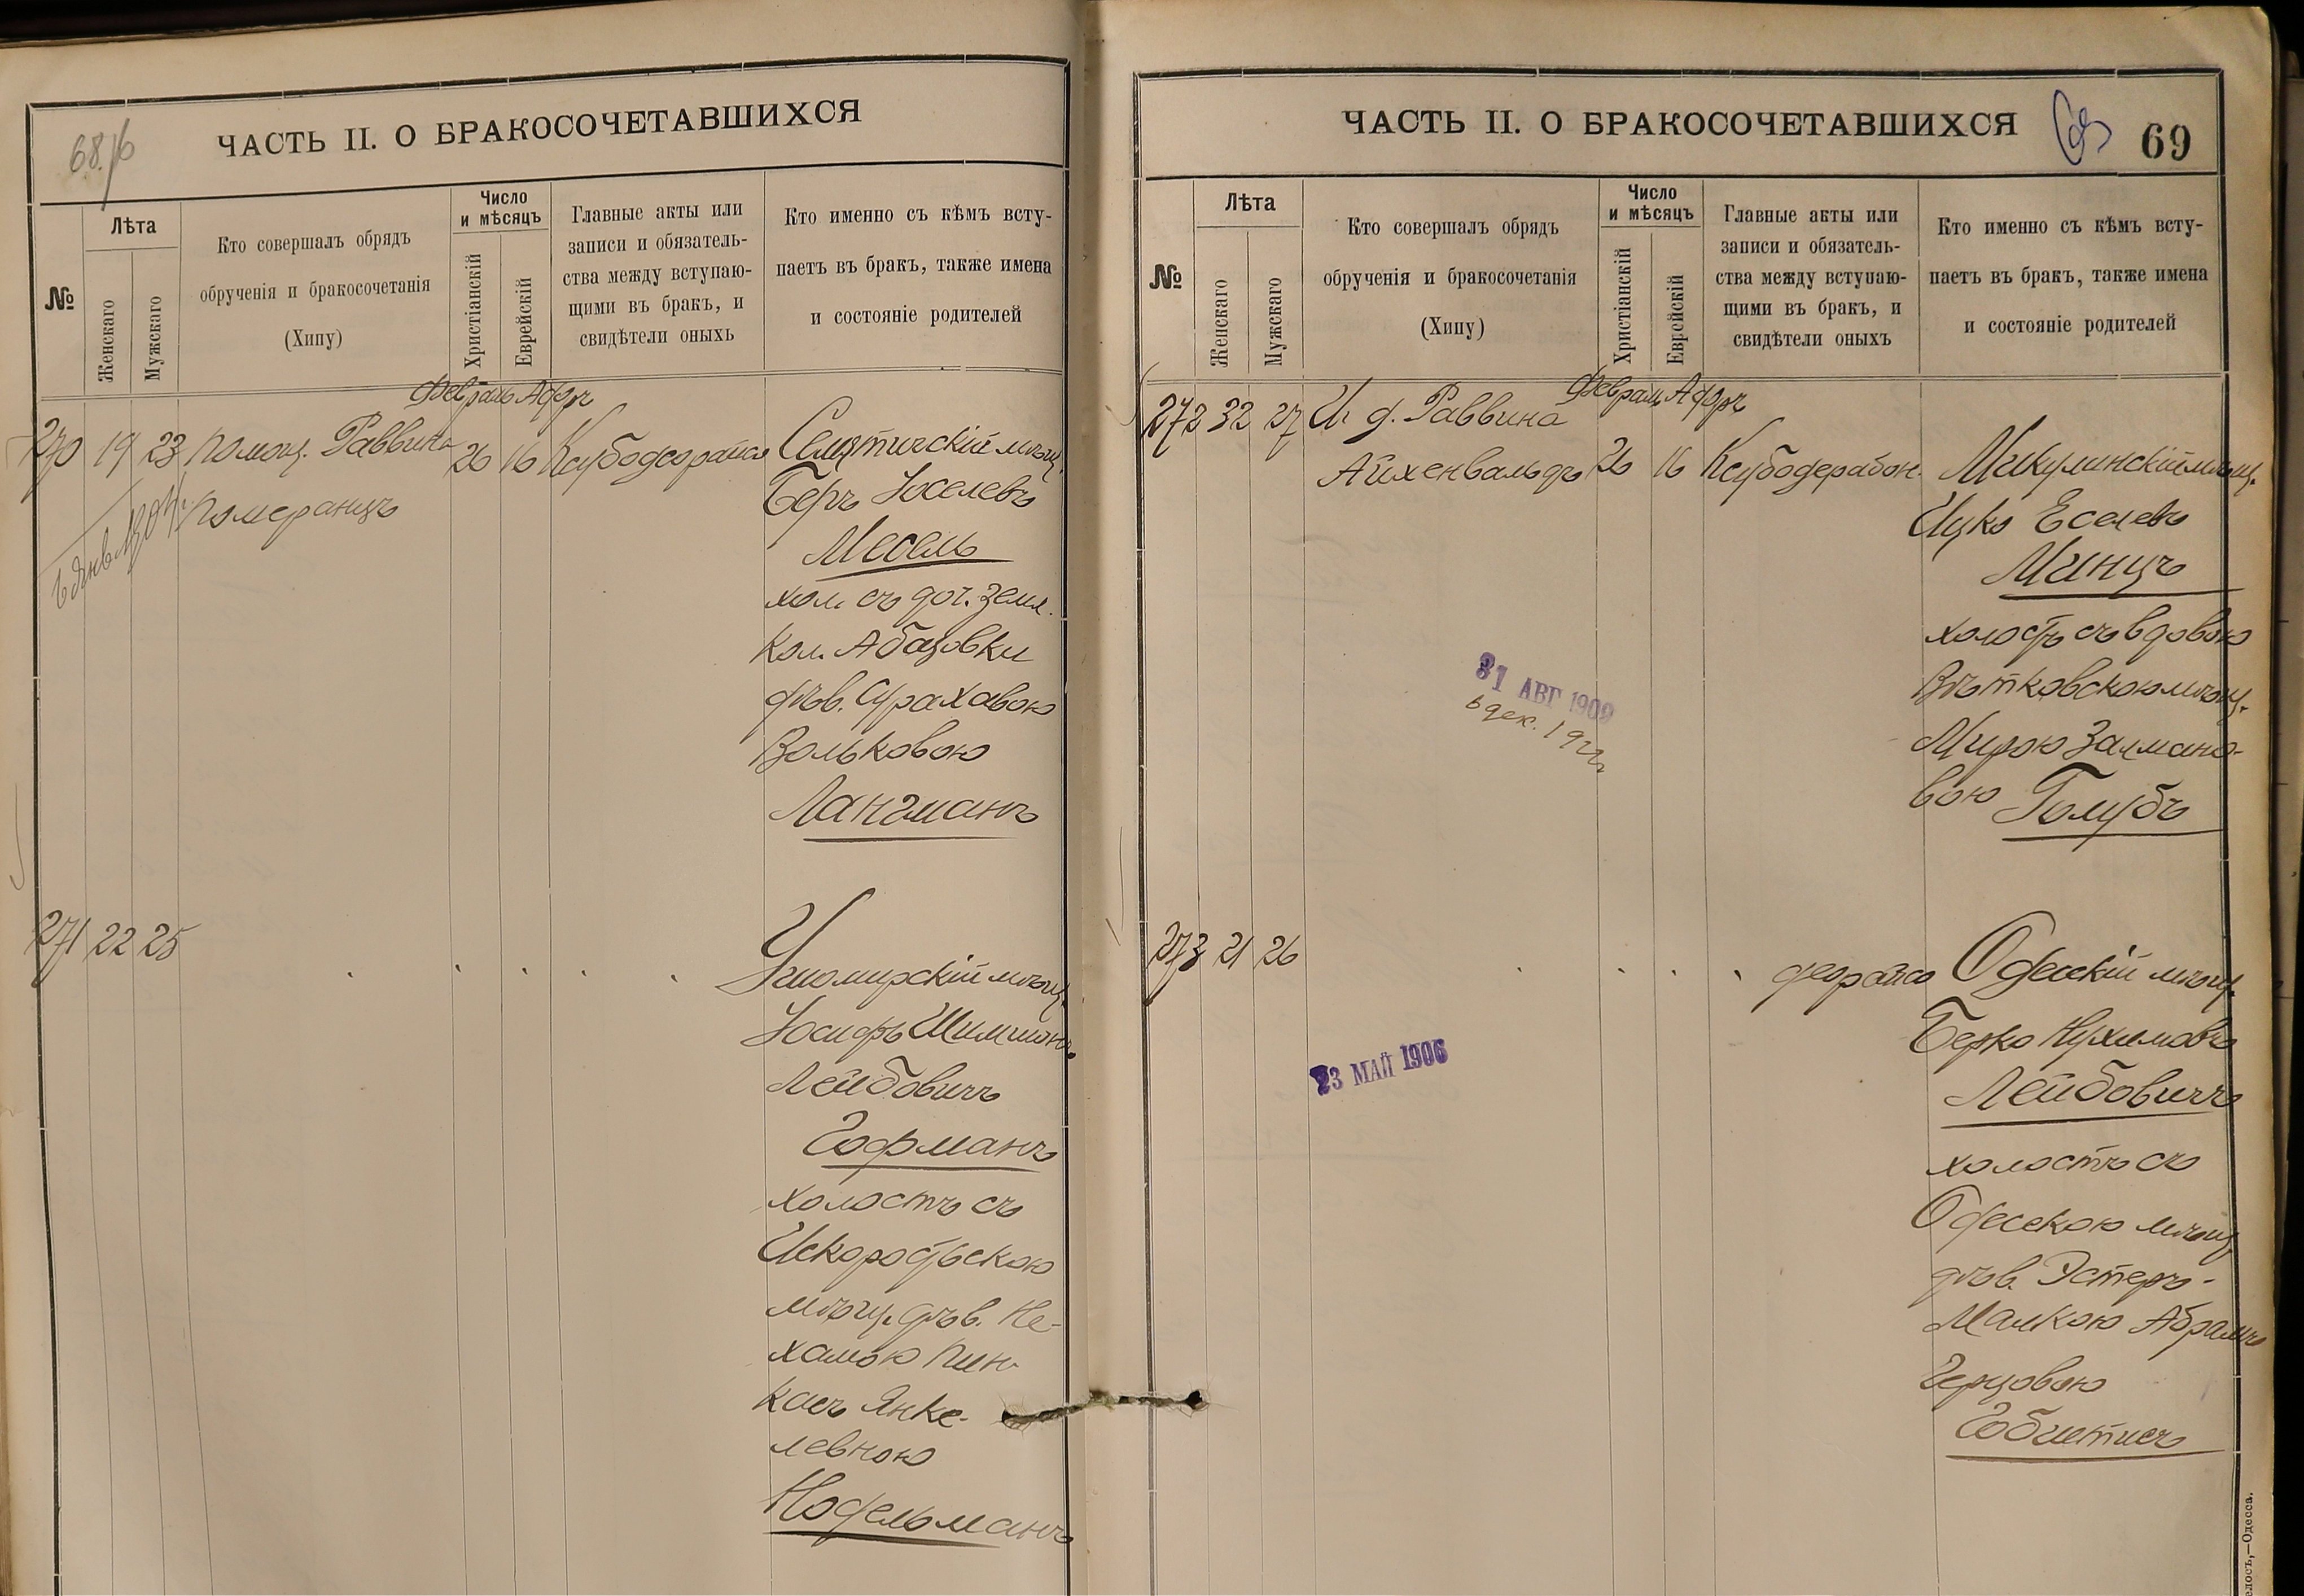 68/б
ЧАСТЬ II. О БРАКОСОЧЕТАВШИХСЯ
№
Лѣта
Женскаго
Мужскаго
Кто совершалъ обрядъ
обрученія и бракосочетанія
(Хипу)
Число
и мѣсяцъ
Христіанскій
Еврейскій
Главные акты или
записи и обязатель-
ства между вступаю-
щими въ бракъ, и
свидѣтели оныхъ
Кто именно съ кѣмъ всту-
паетъ въ бракъ, также имена
и состояніе родителей
Февраль Адаръ
270 19 23 Помощ. Раввина 26 16 Ксубодеорайсо
Померанцъ
Семятичскій мѣщ.
Беръ Іоселевъ
Месель
хол. съ доч. земл.
кол. Абазовки
дѣв. Фрахавою
Вольковою
Лангманъ
271 22 25
Ушомирскій мѣщ.
Іосифъ Шимшонъ
Лейбовичъ
Гофманъ
холостъ съ
Искоростьскою
мѣщ. дѣв. Не-
хамою Пин-
касъ Янке-
левною
Нодельманъ
ЧАСТЬ II. О БРАКОСОЧЕТАВШИХСЯ
69
№
Лѣта
Женскаго
Мужскаго
Кто совершалъ обрядъ
обрученія и бракосочетанія
(Хипу)
Число
и мѣсяцъ
Христіанскій
Еврейскій
Главные акты или
записи и обязатель-
ства между вступаю-
щими въ бракъ, и
свидѣтели оныхъ
Кто именно съ кѣмъ всту-
паетъ въ бракъ, также имена
и состояніе родителей
Февраль Адаръ
272 32 27 И. д. Раввина
Айхенвальдъ 26 16 Ксубодерабон.
Микулинскій мѣщ.
Ицко Еселевъ
Минцъ
холостъ съ вдовою
Вѣтковскою мѣщ.
Мирою Залмано-
вою Голубъ
31 АВГ 1909
6 дек. 1922
273 21 26
деорайсо Одесскій мѣщ.
Берко Нухимовъ
Лейбовичъ
холостъ съ
Одесскою мѣщ
дѣв. Эстеръ-
Малкою Абрамъ
Герцовою
Гобчетисъ
23 МАЙ 1906